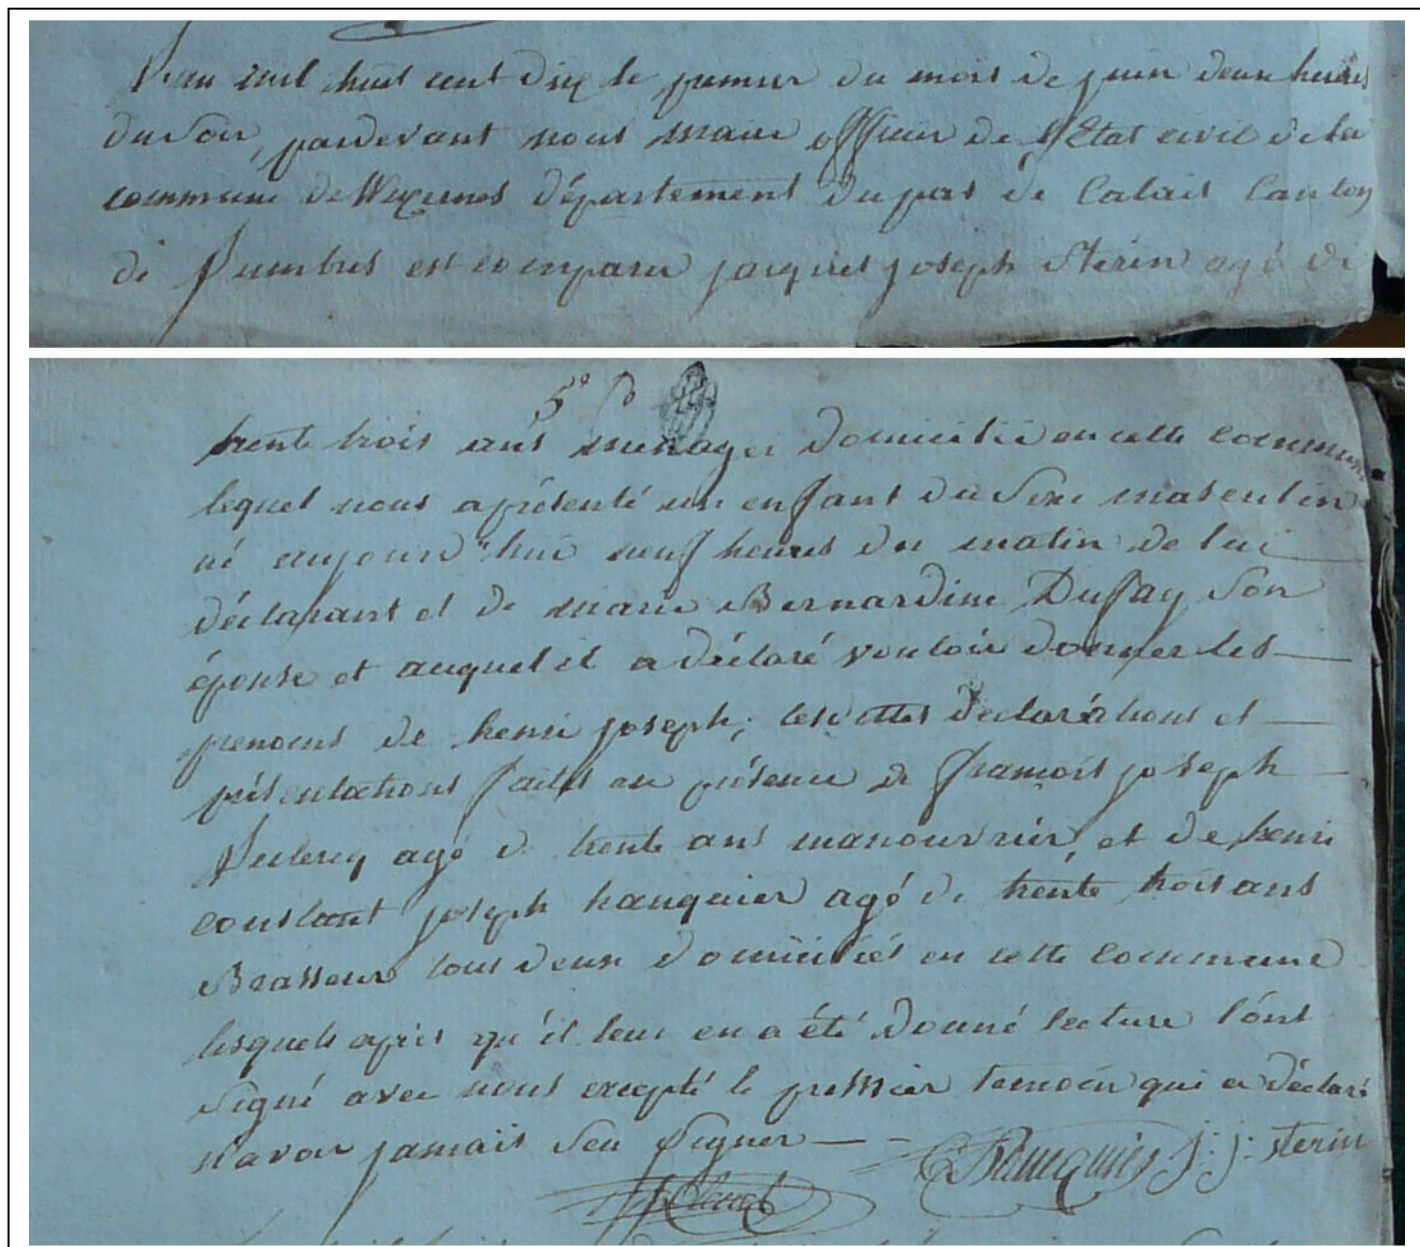 L'an mil huit cent dix le premier du mois de juin deux heures
du soir, pardevant nous maire officier de l'Etat civil de la
commune de Wizernes département du pas de Calais Canton
de Lumbres est comparu jacques joseph Sterin agé de
5e
trente trois ans menager domicilié en cette commune
lequel nous a présenté un enfant du sexe masculin
né aujourd'hui neuf heures du matin de lui
déclarant et de marie Bernardine Dufay son
épouse et auquel il a déclaré vouloir donner les
prenoms de henri joseph; lesdittes déclarations et
présentations faites en présence de françois joseph
Leclercq agé de trente ans manouvrier, et de henri
constant joseph hauquier agé de trente trois ans
Brasseur tous deux domiciliés en cette commune
lesquels après qu'il leur en a été donné lecture l'ont
signé avec nous excepté le premier temoin qui a déclaré
n'avoir jamais seu signer
J: J: sterin